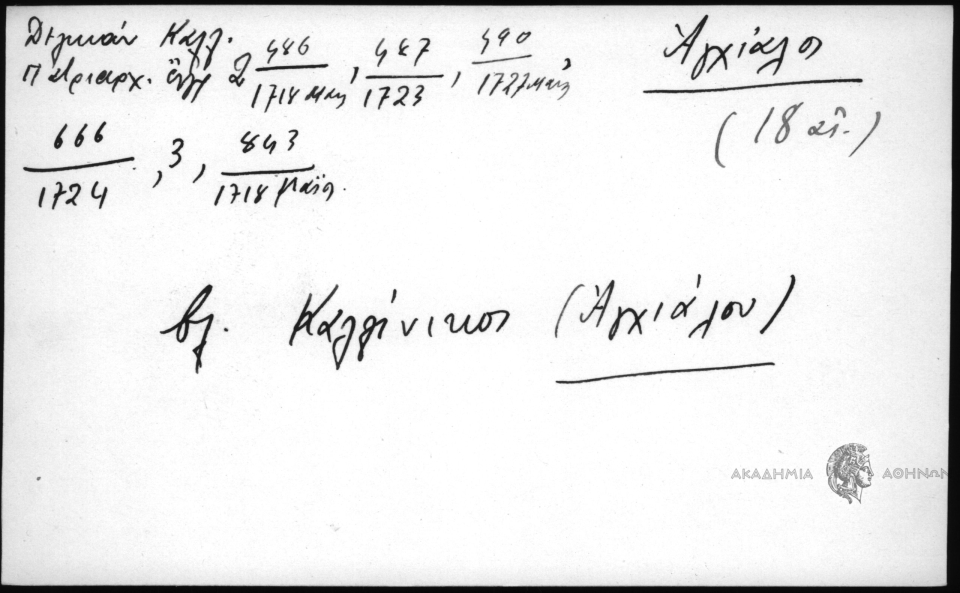 Δελικάν Καλλ.
Πατριαρχ. ἔγγρ 2 486/1718 μαϊ, 487/1723, 490/1727 μαΐ,
666/1724, 3, 843/1718 μαΐο.
Ἀγχίαλος
(18 αἰ.)
βλ. Καλλίνικος (Ἀγχιάλου)
ΑΚΑΔΗΜΙΑ ΑΘΗΝΩΝ